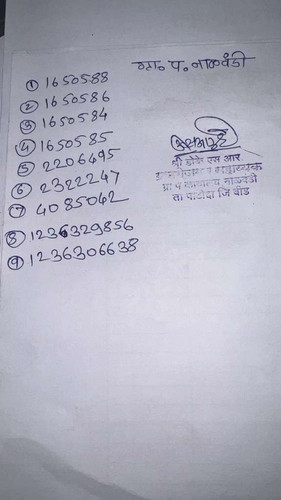 ग्रा. प. नाळवंडी
① 1650588
② 1650586
③ 1650584
④ 1650585
⑤ 2206495
⑥ 2322247
⑦ 4085042
⑧ 1236329856
⑨ 1236306638
श्री डोके एस आर
ग्रा प कार्यालय नाळवंडी
ता पाटोदा जि बीड